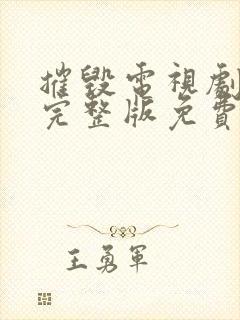 摧毀電視劇
完整版免費
王勇軍